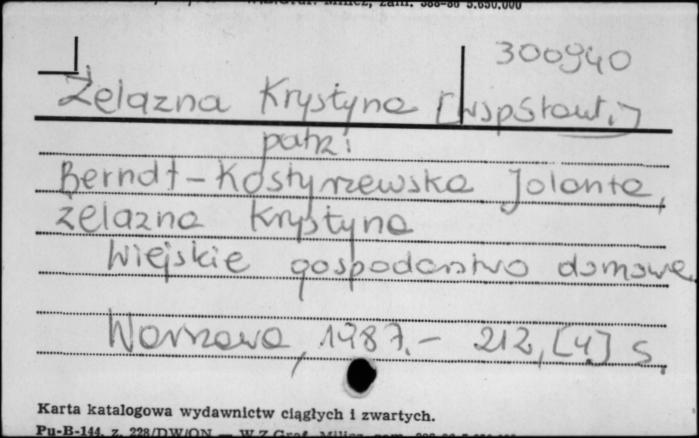 300940
Żelazna Krystyna [współaut.]
patrz:
Berndt-Kostyrzewska Jolanta,
Żelazna Krystyna
Wiejskie gospodarstwo domowe
Warszawa, 1987. - 212, [4] s.
Karta katalogowa wydawnictw ciągłych i zwartych.
Pu-B-144, z. 228/DW/ON — W.Z.Graf. Milicz, zam.